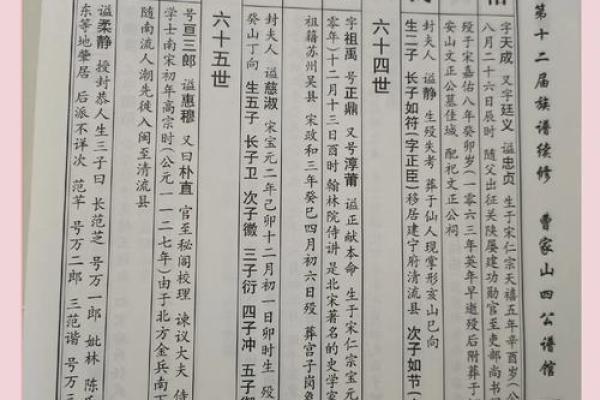 第十二届族谱续修 曹家山四公谱馆
字天成 又字廷义 谥忠贞 生于宋仁宗天禧五年辛酉岁(公
八月二十六日辰时 随父出征关陕屡建功勋官至吏部尚书
殁于宋嘉佑八年癸卯岁(一〇六三年英年早逝殁后附葬于
安山文正公墓佳城 配祀文正公祠
封夫人 谥静 生殁失考 葬于仙人现掌形亥山巳向
生二子 长子如符(字正臣)移居建宁府清流县 次子如节(
六十四世
字祖禹 号正鼎 又号淳莆 谥正献本命 生于宋仁宗宝元
零年)十二月十三日酉时 翰林院侍讲 是北宋著名的史学家
祖籍苏州吴县 宋政和三年癸巳四月初六日殁 葬宫子岗龟
封夫人 谥慈淑 宋宝元二年己卯十二月初一日卯时生 殁
癸山丁向 生五子 长子卫 次子徽 三子衍 四子冲 五子御
六十五世
号亘三郎 谥惠穆 又曰朴直 官至秘阁校理 谏议大夫 侍
学士南宋初年高宗时(公元一一二七年)由于北方金兵南下
随南流人潮先徙入闽至清流县
谥柔静 授封恭人生三子曰 长范芝 号万一郎 妣林 陈氏
东等地肇居 后派不详次 范苹 号万二郎 三范谐 号万三